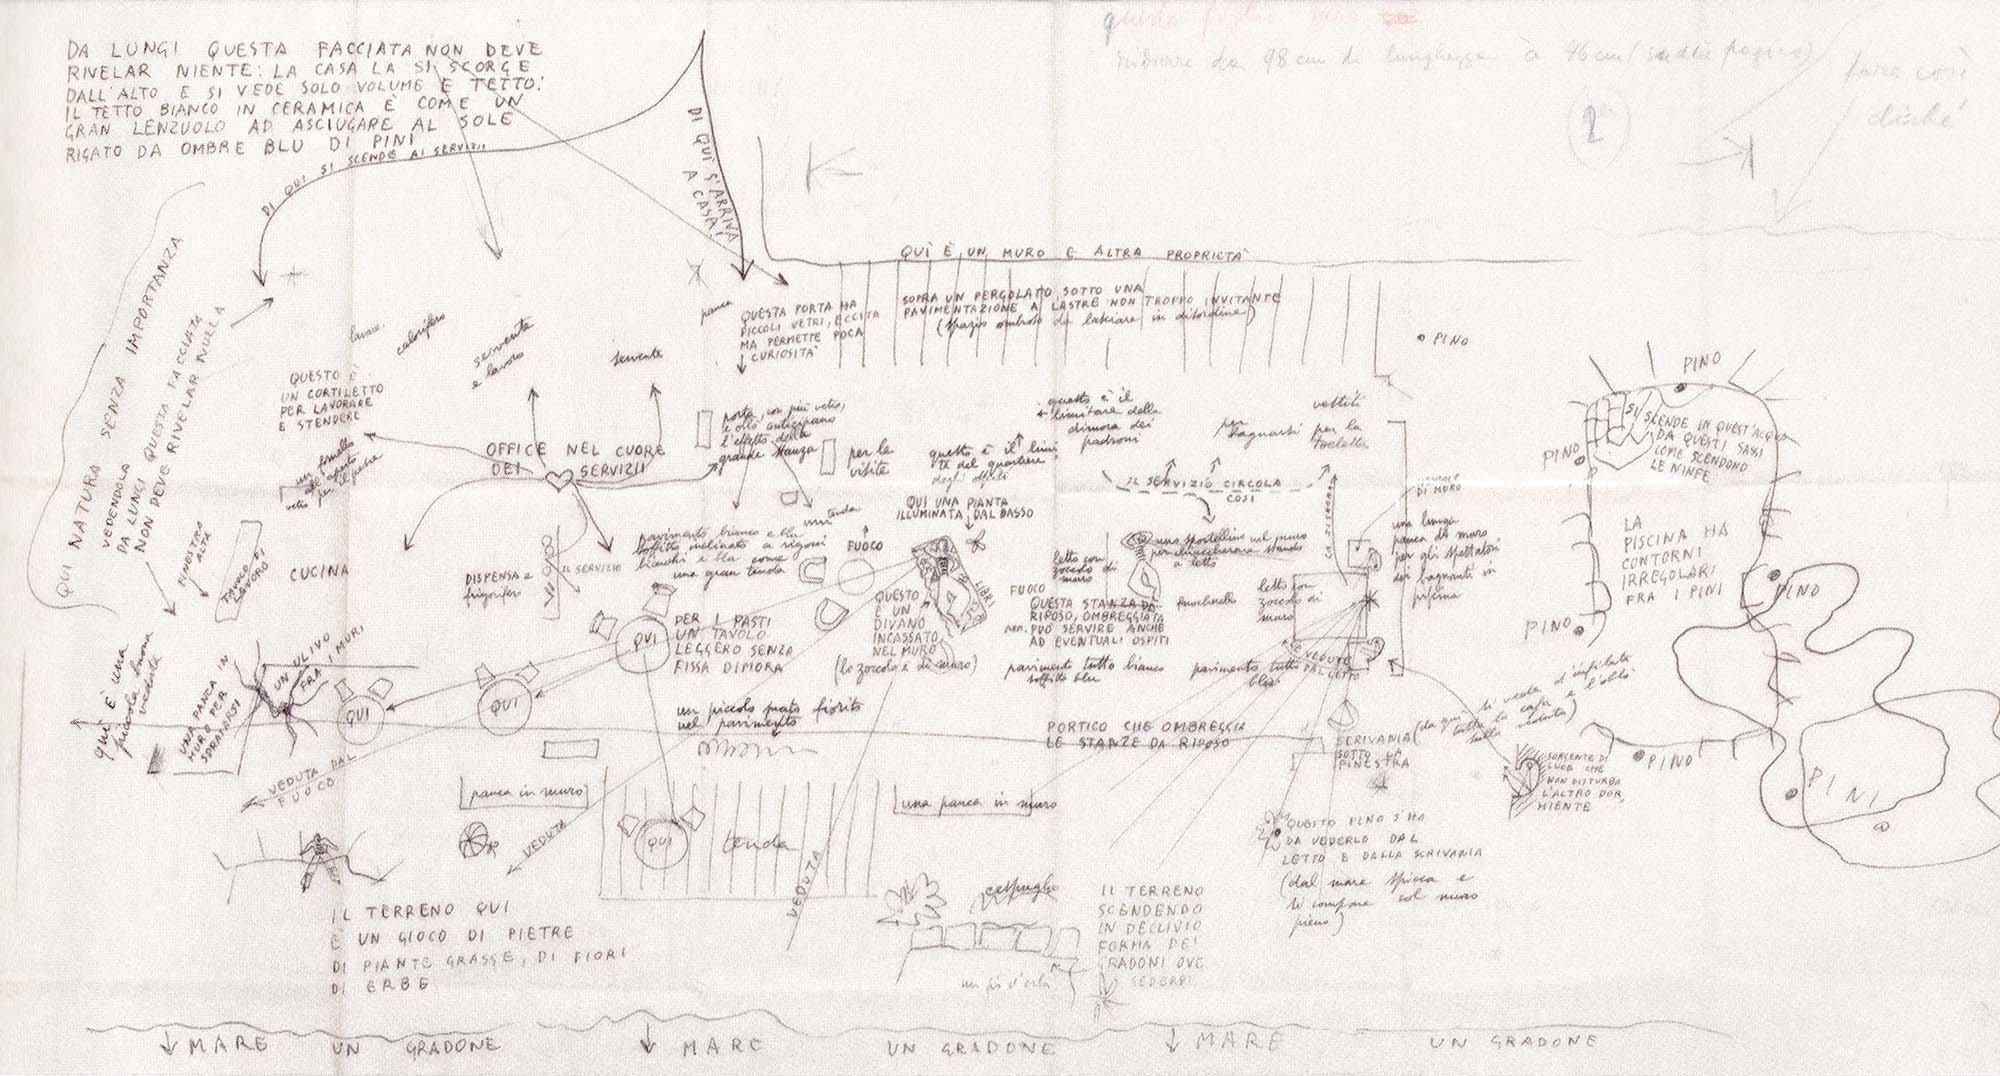 DA LUNGI QUESTA FACCIATA NON DEVE
RIVELAR NIENTE: LA CASA LA SI SCORGE
DALL'ALTO E SI VEDE SOLO VOLUME E TETTO:
IL TETTO BIANCO IN CERAMICA È COME UN
GRAN LENZUOLO AD ASCIUGARE AL SOLE
RIGATO DA OMBRE BLU DI PINI
DI QUI SI SCENDE AI SERVIZII
DI QUÌ S'ARRIVA
A CASA!
ridurre da 98 cm di lunghezza à 46 cm
2
clichè
QUI NATURA SENZA IMPORTANZA
VEDENDOLA
DA LUNGI QUESTA FACCIATA
NON DEVE RIVELAR NULLA
QUÌ È UN MURO E ALTRA PROPRIETÀ
SOPRA UN PERGOLATO, SOTTO UNA
PAVIMENTAZIONE A LASTRE NON TROPPO INVITANTE
(spazio ombroso da lasciare in disordine)
panca
QUESTA PORTA HA
PICCOLI VETRI, ECCITA
MA PERMETTE POCA
CURIOSITÀ
calorifero
servente
e lavoro
servente
QUESTO È
UN CORTILETTO
PER LAVORARE
E STENDERE
OFFICE NEL CUORE
DEI SERVIZII
porta, con più vetro,
l'effetto della
grande stanza
per le
visite
questo è il limi
te del quartiere
degli ospiti
questo è il
limitare della
dimora dei
padroni
per
bagnarsi
vestiti
per la
toeletta
PINO
PINO
PINO
PINO
SI SCENDE IN QUEST'ACQUA
DA QUESTI SASSI
COME SCENDONO
LE NINFE
LA
PISCINA HA
CONTORNI
IRREGOLARI
FRA I PINI
PINO
PINO
PINI
IL SERVIZIO CIRCOLA
COSÌ
QUI UNA PIANTA
ILLUMINATA DAL BASSO
tenda
FINESTRA
ALTA
TAVOLO
LAVORO
CUCINA
DISPENSA e
frigorifero
IL SERVIZIO
pavimento bianco e blu
soffitto inclinato a rigoni
bianchi e blu come
una gran tenda
FUOCO
LIBRI
FUOCO
letto con
zoccolo di
muro
uno sportellino nel muro
per chiacchierare stando
a letto
letto con
zoccolo di
muro
DI MURO
una lunga
panca di muro
per gli spettatori
dei bagnanti in
piscina
QUESTO
È UN
DIVANO
INCASSATO
NEL MURO
(lo zoccolo è di muro)
QUESTA STANZA DA
RIPOSO, OMBREGGIATA
PUÒ SERVIRE ANCHE
AD EVENTUALI OSPITI
pavimento tutto bianco
soffitto blu
pavimento tutto
blu
VEDUTE
DAL LETTO
QUI
PER I PASTI
UN TAVOLO
LEGGERO SENZA
FISSA DIMORA
QUI
QUI
QUI
un piccolo prato fiorito
nel pavimento
UN ULIVO
FRA I MURI
qui è una
piccola buona
veduta
UNA PANCA IN
MURO PER
SDRAIARSI
VEDUTA DAL
FUOCO
PORTICO CHE OMBREGGIA
LE STANZE DA RIPOSO
SCRIVANIA
SOTTO LA
FINESTRA
(da qui si vede d'infilata
tutta la casa e l'oblò
SORGENTE DI
LUCE CHE
NON DISTURBA
L'ALTRO DOR,
MIENTE
panca in muro
una panca in muro
tenda
VEDUTA
VEDUTA
QUESTO PINO S'HA
DA VEDERLO DAL
LETTO E DALLA SCRIVANIA
(dal mare spicca e
si compone col muro
pieno)
cespuglio
IL TERRENO
SCENDENDO
IN DECLIVIO
FORMA DEI
GRADONI OVE
SEDERSI
IL TERRENO QUI
È UN GIOCO DI PIETRE
DI PIANTE GRASSE, DI FIORI
DI ERBE
MARE
UN GRADONE
MARE
UN GRADONE
MARE
UN GRADONE